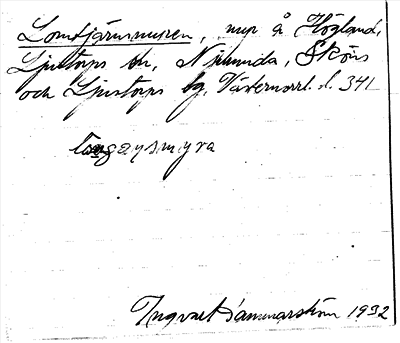 Lomtjärnsmyren, myr å Högland,
Ljustorps sn, Njurunda, Sköns
och Ljustorps tg, Västernorrl. l. 341
Ingvar Hammarström 1932